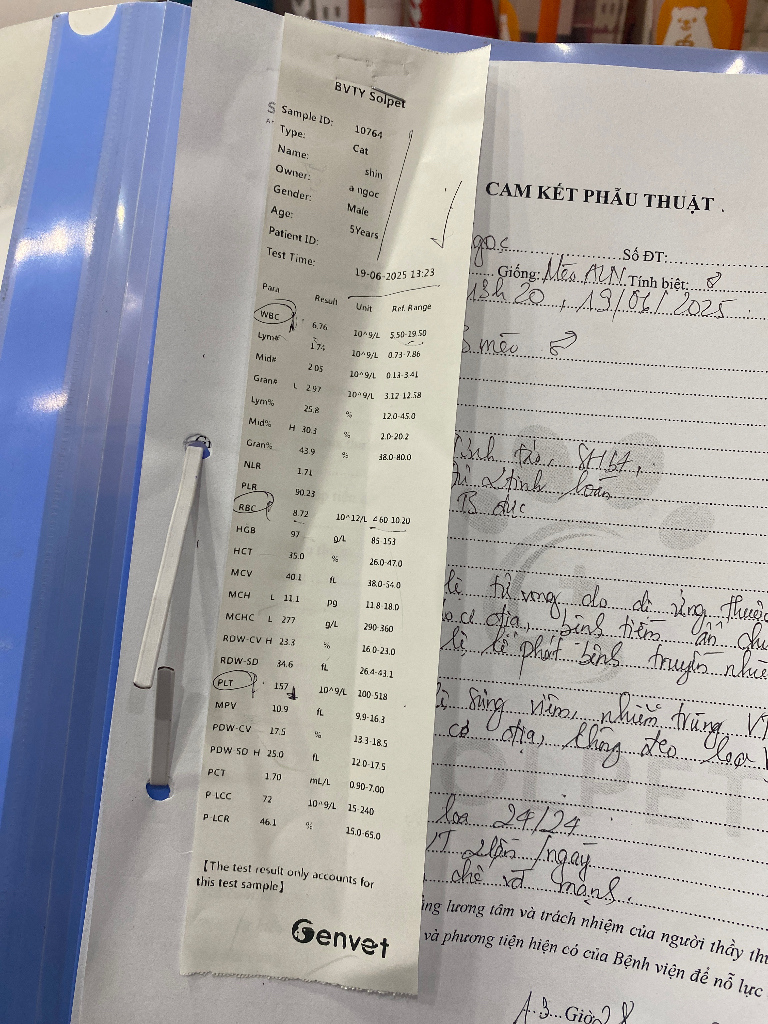 BVTY Solpet
Sample ID: 10764
Type: Cat
Name: shin
Owner: a ngoc
Gender: Male
Age: 5Years
Patient ID:
Test Time: 19-06-2025 13:23
Para Result Unit Ref. Range
WBC 6.76 10^9/L 5.50-19.50
Lym# 1.74 10^9/L 0.73-7.86
Mid# 2.05 10^9/L 0.13-3.41
Gran# L 2.97 10^9/L 3.12-12.58
Lym% 25.8 % 12.0-45.0
Mid% H 30.3 % 2.0-20.2
Gran% 43.9 % 38.0-80.0
NLR 1.71
PLR 90.23
RBC 8.72 10^12/L 4.60-10.20
HGB 97 g/L 85-153
HCT 35.0 % 26.0-47.0
MCV 40.1 fL 38.0-54.0
MCH L 11.1 pg 11.8-18.0
MCHC L 277 g/L 290-360
RDW-CV H 23.3 % 16.0-23.0
RDW-SD 34.6 fL 26.4-43.1
PLT 157 10^9/L 100-518
MPV 10.9 fL 9.9-16.3
PDW-CV 17.5 % 13.3-18.5
PDW-SD H 25.0 fL 12.0-17.5
PCT 1.70 mL/L 0.90-7.00
P-LCC 72 10^9/L 15-240
P-LCR 46.1 % 15.0-65.0
【The test result only accounts for
this test sample】
Genvet
CAM KẾT PHẪU THUẬT
goc Số ĐT:
Giống: Mèo ALN Tính biệt: ♂
13h20, 19/06/2025
mèo ♂
tinh hoàn
B đực
tử vong do dị ứng thuốc
cơ địa, bệnh tiềm ẩn
phát bệnh truyền nhiễ
sưng viêm, nhiễm trùng, VT
cơ địa, không đeo loa
loa 24/24
VT 2 lần/ngày
chế vđ mạnh.
lương tâm và trách nhiệm của người thầy thu
và phương tiện hiện có của Bệnh viện để nỗ lực
Giờ